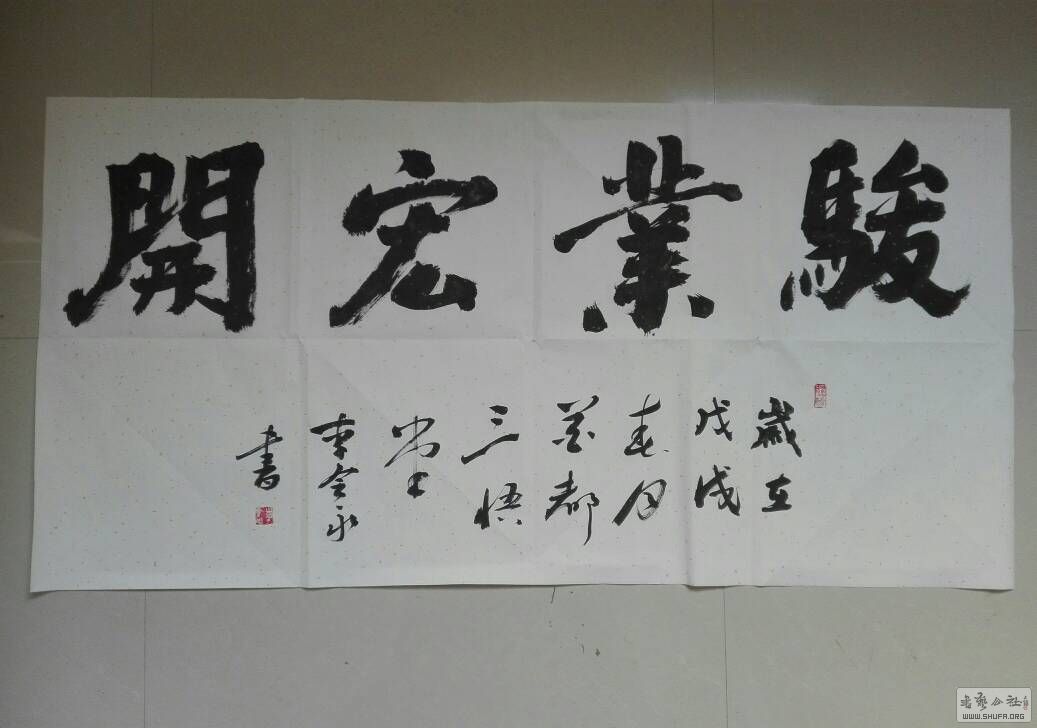 駿業宏開
歲在
戊戌
春月
花都
三悟
堂
李会永
書
书艺公社
WWW.SHUFA.ORG